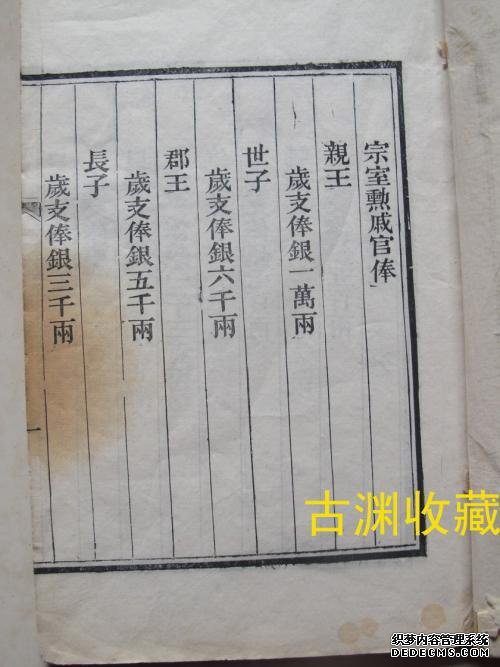 宗室勲戚官俸
親王
歲支俸銀一萬兩
世子
歲支俸銀六千兩
郡王
歲支俸銀五千兩
長子
歲支俸銀三千兩
一
古渊收藏
织梦内容管理系统
DEDECMS.COM